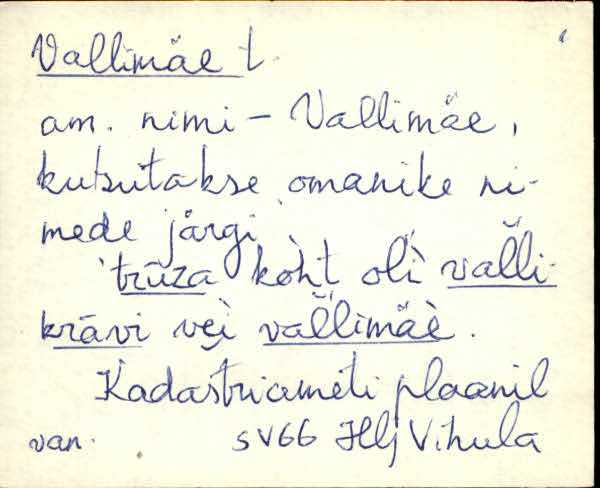 Vallimäe t.
am. nimi – Vallimäe,
kutsutakse omanike ni-
mede järgi.
`trūza koht oli valli-
krāvi vęi vallimäe.
Kadastriameti plaanil
van. SV66 Hlj Vihula